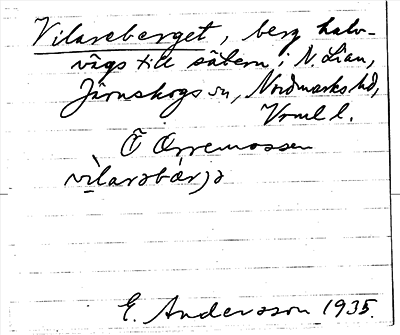 Vilareberget, berg halv-
vägs till sätern i N. Lian,
Järnskogs sn, Nordmarks hd,
Vrml l.
Ö Orremossen
vìlarəbærjə
E. Andersson 1935.